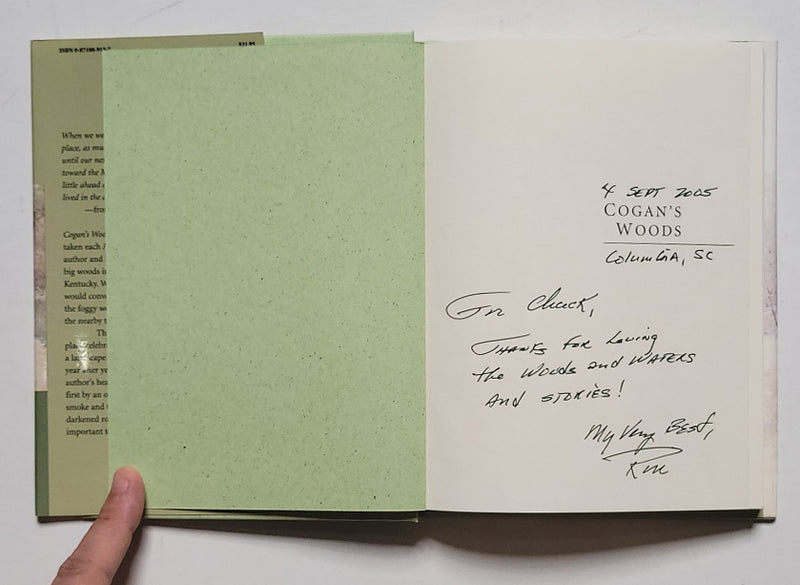 ISBN 0-87108-915-7 $21.95
When we we
place, as mu
until our nex
toward the M
little ahead o
lived in the
—fro
Cogan's Woo
taken each
author and
big woods in
Kentucky. W
would conv
the foggy wo
the nearby t
Th
place celebr
a landscape
year after ye
author's hea
first by an o
smoke and
darkened ro
important t
4 SEPT 2005
COGAN'S
WOODS
Columbia, SC
For Chuck,
THANKS FOR Loving
the WOODS and WATERS
AND STORIES!
My Very Best,
Ron